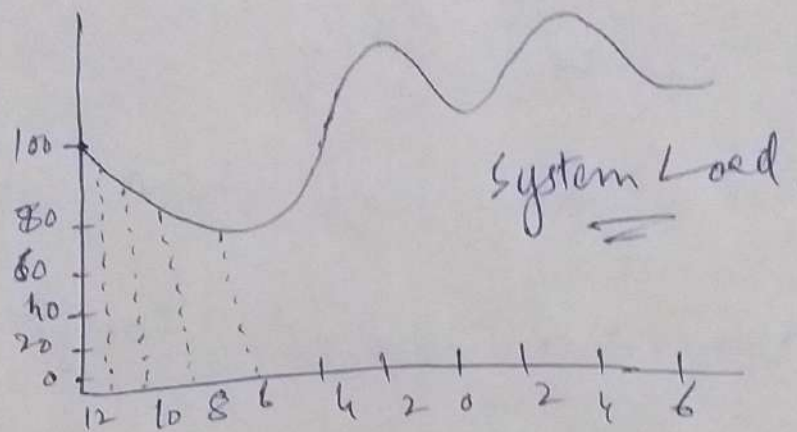 100
80
60
40
20
0
System Load
12 10 8 6 4 2 0 2 4 6